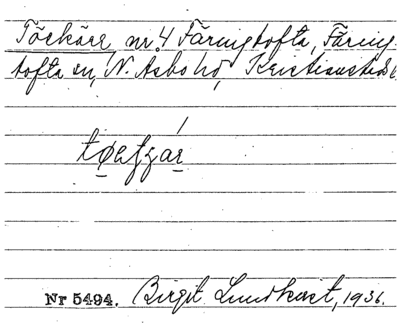 Töckärr, nr 4 Färingtofta, Färing-
tofta sn, N. Åsbo hd, Kristianstads l.
Nr 5494. Birgit Lundkvist, 1936.